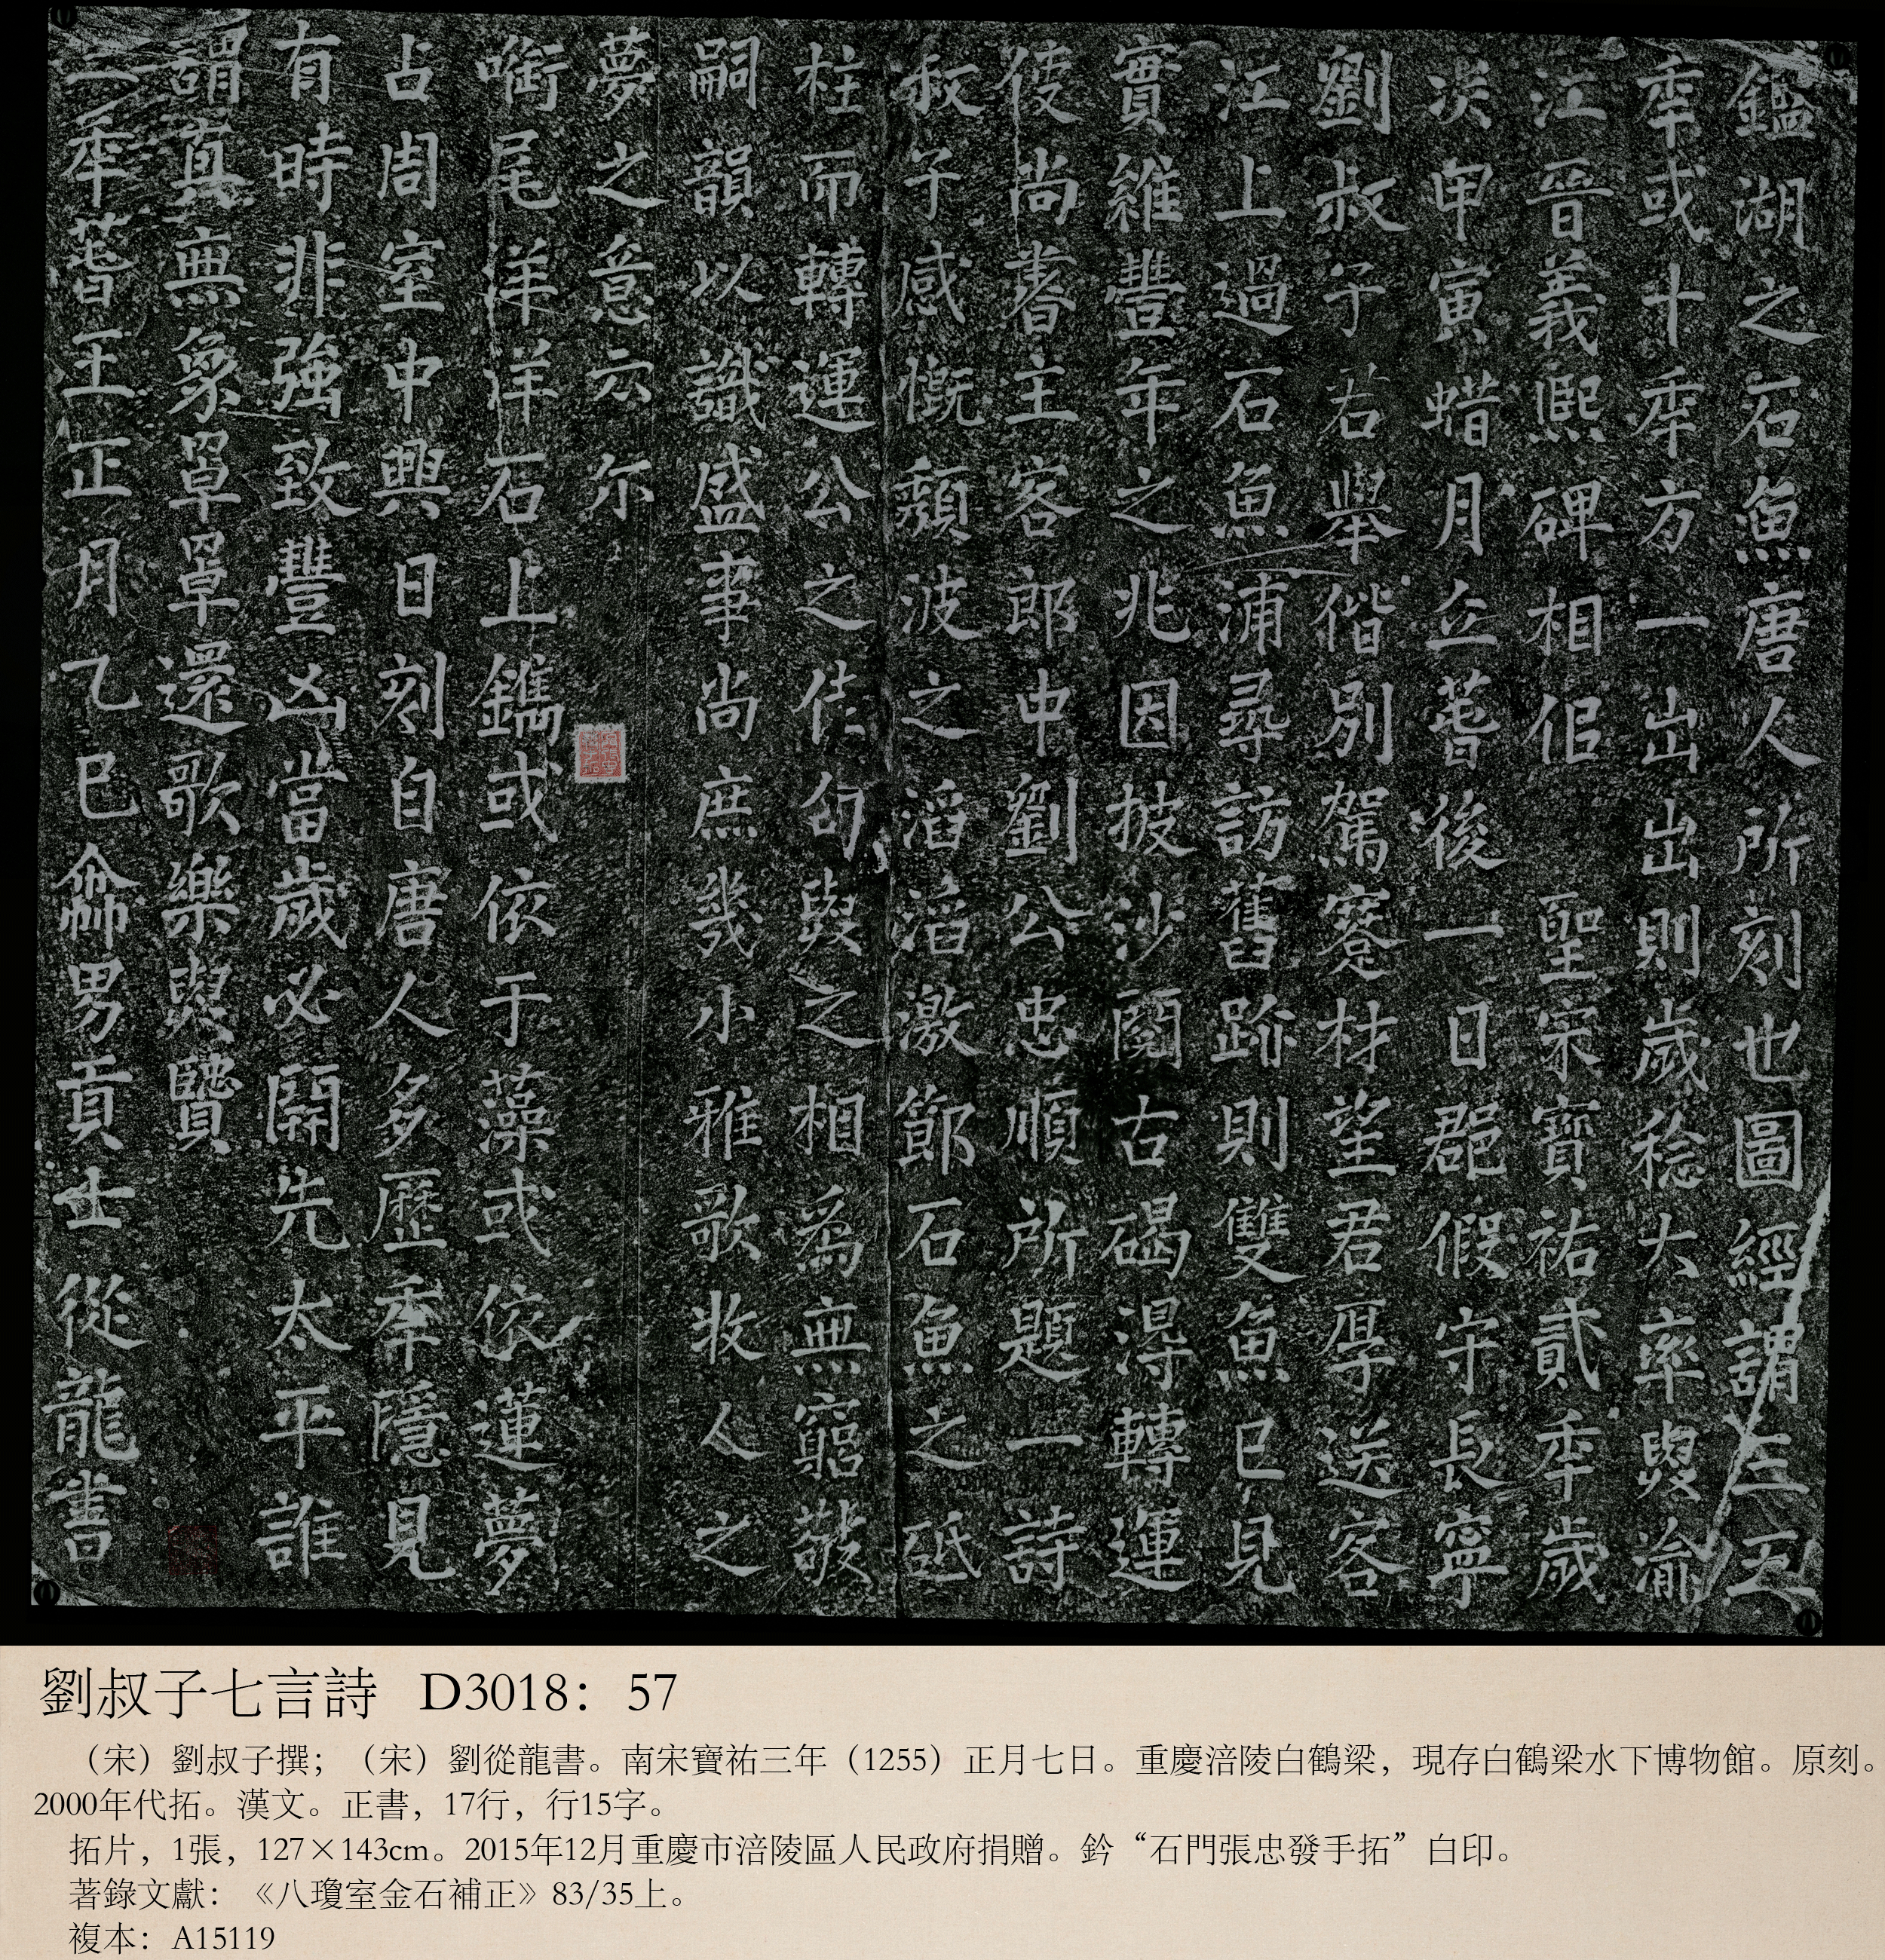 鑑湖之石魚唐人所刻也圖經謂三五
秊或十秊方一出出則歲稔大率與渝
江晉義熙碑相侣聖宗寶祐貳秊歲
次甲寅蜡月立萅後一日郡假守長寧
劉叔子君舉偕別駕蹇材望君厚送客
江上過石魚浦尋訪舊跡則雙魚已見
實維豐年之兆因披沙閱古碣得轉運
使尚書主客郎中劉公忠順所題一詩
叔子感慨頽波之滔滔激節石魚之砥
柱而轉運公之佳句與之相爲無窮敬
嗣韻以識盛事尚庶幾小雅歌牧人之
夢之意云尔
銜尾洋洋石上鐫或依于藻或依蓮夢
占周室中興日刻自唐人多歷秊隱見
有時非強致豐凶當歲必開先太平誰
謂真無象罩罩還歌樂與賢
三秊萅王正月乙巳命男貢士從龍書
劉叔子七言詩 D3018：57
（宋）劉叔子撰；（宋）劉從龍書。南宋寶祐三年（1255）正月七日。重慶涪陵白鶴梁，現存白鶴梁水下博物館。原刻。
2000年代拓。漢文。正書，17行，行15字。
拓片，1張，127×143cm。2015年12月重慶市涪陵區人民政府捐贈。鈐“石門張忠發手拓”白印。
著錄文獻：《八瓊室金石補正》83/35上。
複本：A15119